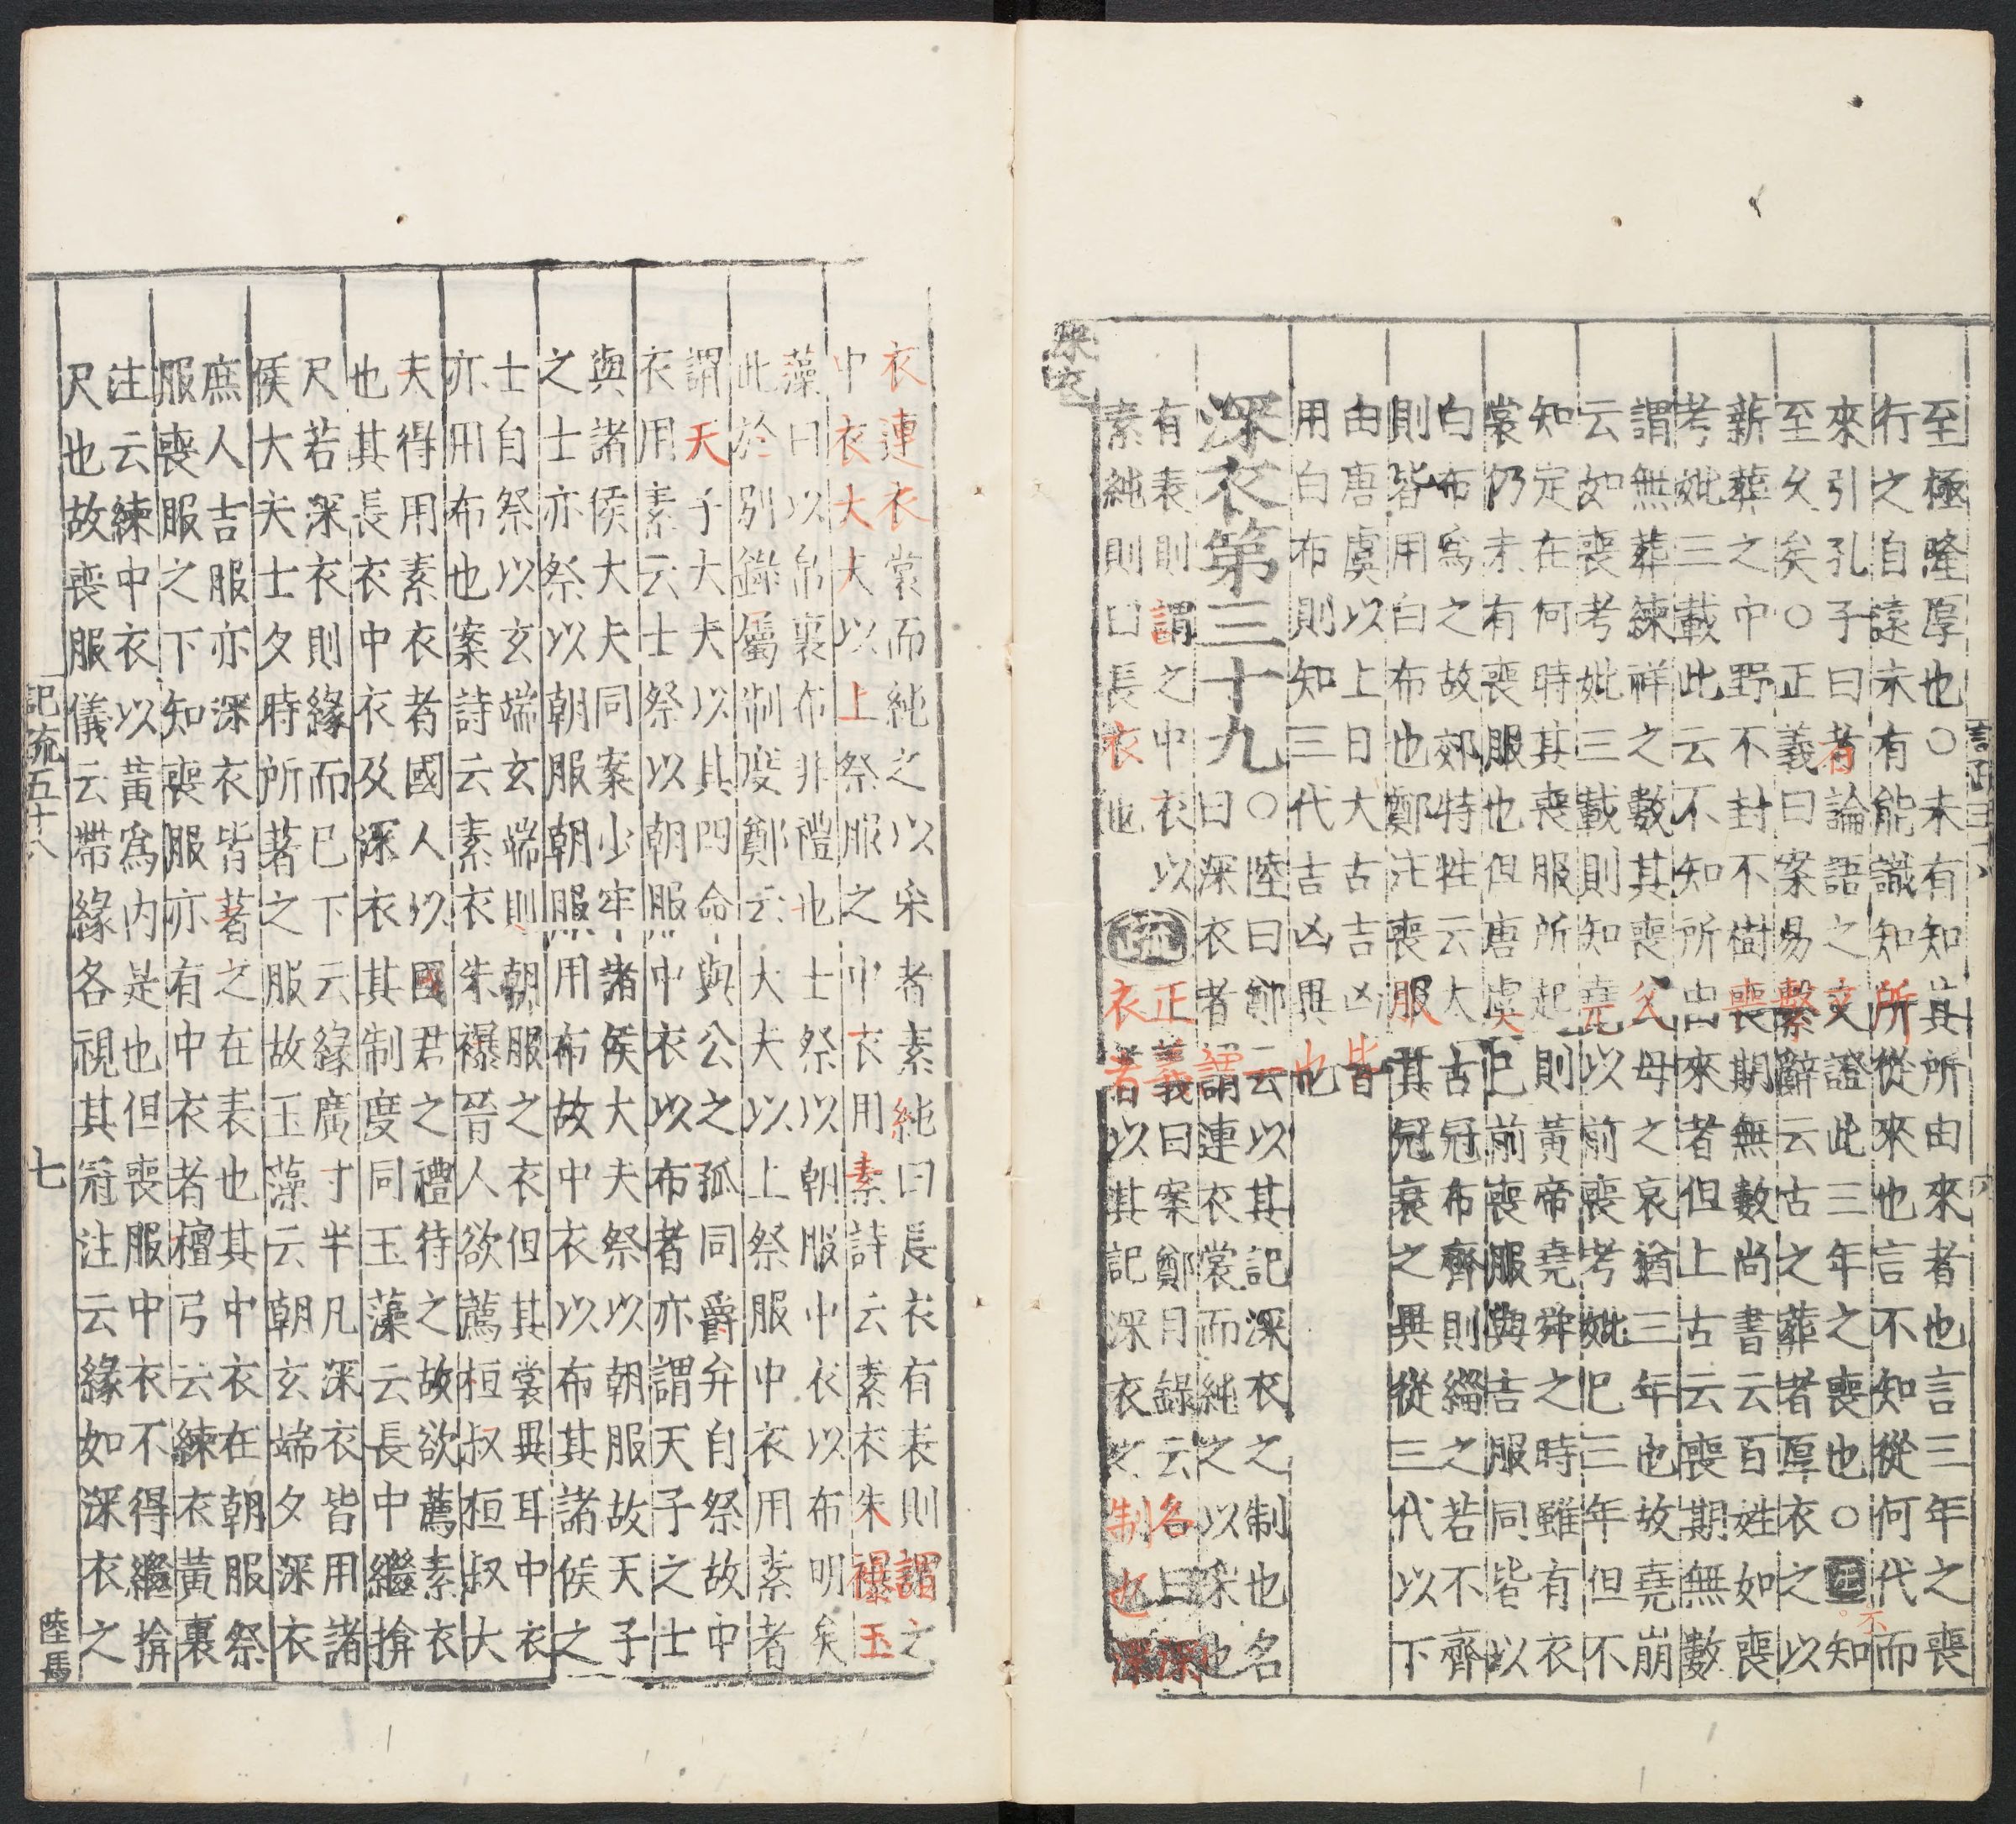 至極隆厚也○未有知其所由來者也言三年之喪
行之自遠未有能識知所從來也言不知從何代而不
來引孔子曰者論語之文證此三年之喪也○疏知
至久矣○正義曰案易繫辭云古之葬者厚衣之以
薪葬之中野不封不樹喪期無數尚書云百姓如喪
考妣三載此云不知所由來者但上古云喪期無數
謂無葬練祥之數其喪父母之哀猶三年也故堯崩
云如喪考妣三載則知堯以前喪考妣已三年但不
知定在何時其喪服所起則黃帝堯舜之時雖有衣
裳仍未有喪服也但唐虞已前喪服與吉服同皆以
白布爲之故郊特牲云大古冠布齊則緇之若不齊
則皆用白布也鄭注喪服其冠衰之異從三代以下
由唐虞以上曰大古吉凶皆
用白布則知三代吉凶異也
深衣第三十九
○陸曰鄭云以其記深衣之制也名
曰深衣者謂連衣裳而純之以采也
有表則謂之中衣以
素純則曰長衣也
疏
正義曰案鄭目錄云名曰深
衣者以其記深衣之制也深
衣連衣裳而純之以采者素純曰長衣有表則謂之
中衣大夫以上祭服之中衣用素詩云素衣朱襮玉
藻曰以帛裏布非禮也士祭以朝服中衣以布明矣
此於別錄屬制度鄭云大夫以上祭服中衣用素者
謂天子大夫以其四命與公之孤同爵弁自祭故中
衣用素云士祭以朝服中衣以布者亦謂天子之士
與諸侯大夫同案少牢諸侯大夫祭以朝服故天子
之士亦祭以朝服朝服用布故中衣以布其諸侯之
士自祭以玄端玄端則朝服之衣但其裳異耳中衣
亦用布也案詩云素衣朱襮晉人欲薦桓叔桓叔大
夫得用素衣者國人以國君之禮待之故欲薦素衣
也其長衣中衣及深衣其制度同玉藻云長中繼揜
尺若深衣則緣而已下云緣廣寸半凡深衣皆用諸
侯大夫士夕時所著之服故玉藻云朝玄端夕深衣
庶人吉服亦深衣皆著之在表也其中衣在朝服祭
服喪服之下知喪服亦有中衣者檀弓云練衣黃裏
注云練中衣以黃爲內是也但喪服中衣不得繼揜
尺也故喪服儀云帶緣各視其冠注云緣如深衣之
記疏五十八
七
陸馬